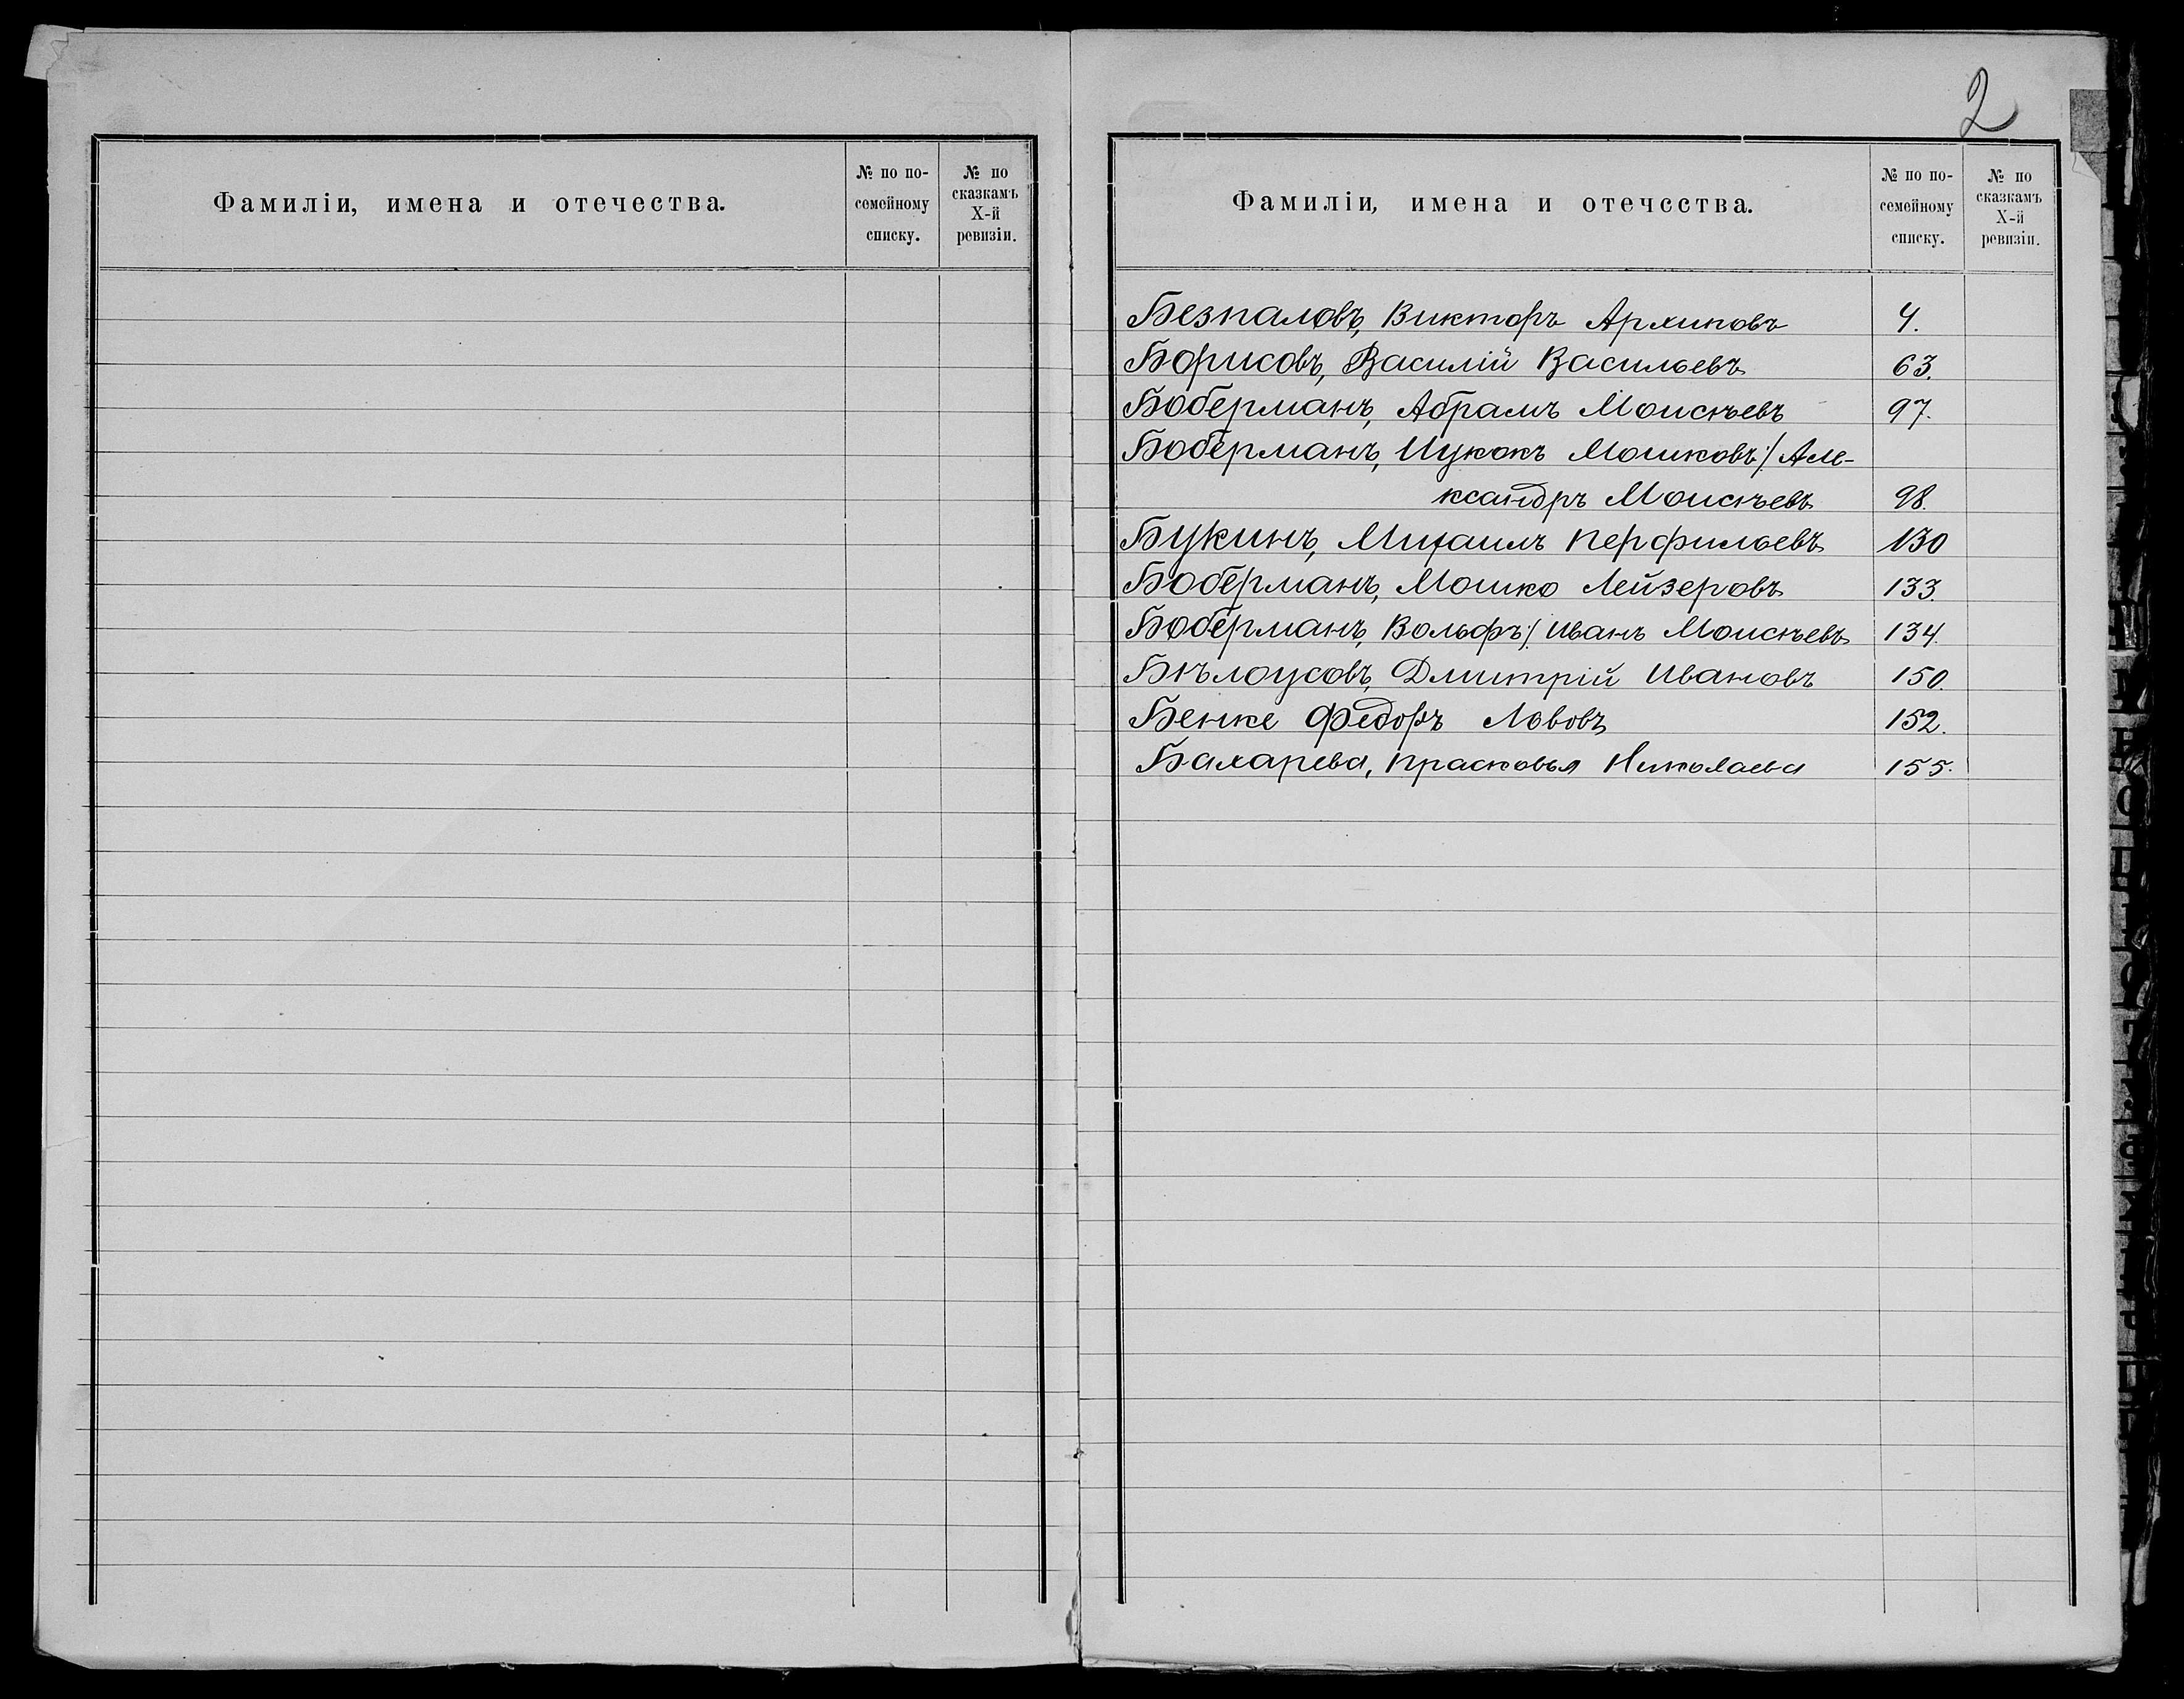 Фамиліи, имена и отечества.
№ по по-
семейному
списку.
№ по
сказкамъ
X-й
ревизіи.
2
Фамиліи, имена и отечества.
№ по по-
семейному
списку.
№ по
сказкамъ
X-й
ревизіи.
Безпаловъ, Викторъ Архиповъ 4.
Борисовъ, Василій Васильевъ 63.
Боберманъ, Абрамъ Моисѣевъ 97.
Боберманъ, Ицкокъ Мошковъ/ Але-
ксандръ Моисѣевъ 98.
Букинъ, Михаилъ Перфильевъ 130
Боберманъ, Мошко Лейзеровъ 133.
Боберманъ, Вольфъ/ Иванъ Моисѣевъ 134.
Бѣлоусовъ, Дмитрій Ивановъ 150.
Бенке Федоръ Львовъ 152.
Бахарева, Прасковья Николаева 155.